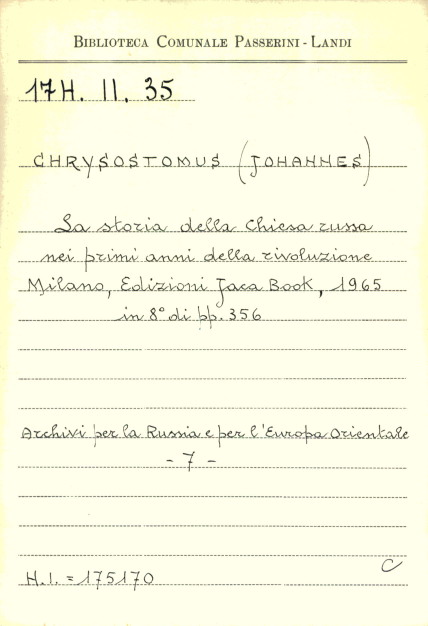 BIBLIOTECA COMUNALE PASSERINI-LANDI
17H. II. 35
CHRYSOSTOMUS (JOHANNES)
La storia della Chiesa russa
nei primi anni della rivoluzione
Milano, Edizioni Jaca Book, 1965
in 8° di pp. 356
Archivi per la Russia e per l'Europa Orientale
- 7 -
C
H.I. = 175170